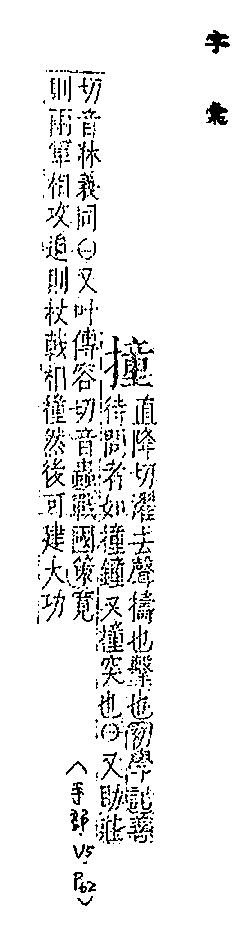 字彙
撞 直降切濯去聲擣也擊也礼學記善
待問者如撞鐘又撞突也○又助莊
切音牀義同○又叶傳容切音蟲戰國策寬
則兩軍相攻迫則杖戟相撞然後可建大功
(手部.V5.P62)